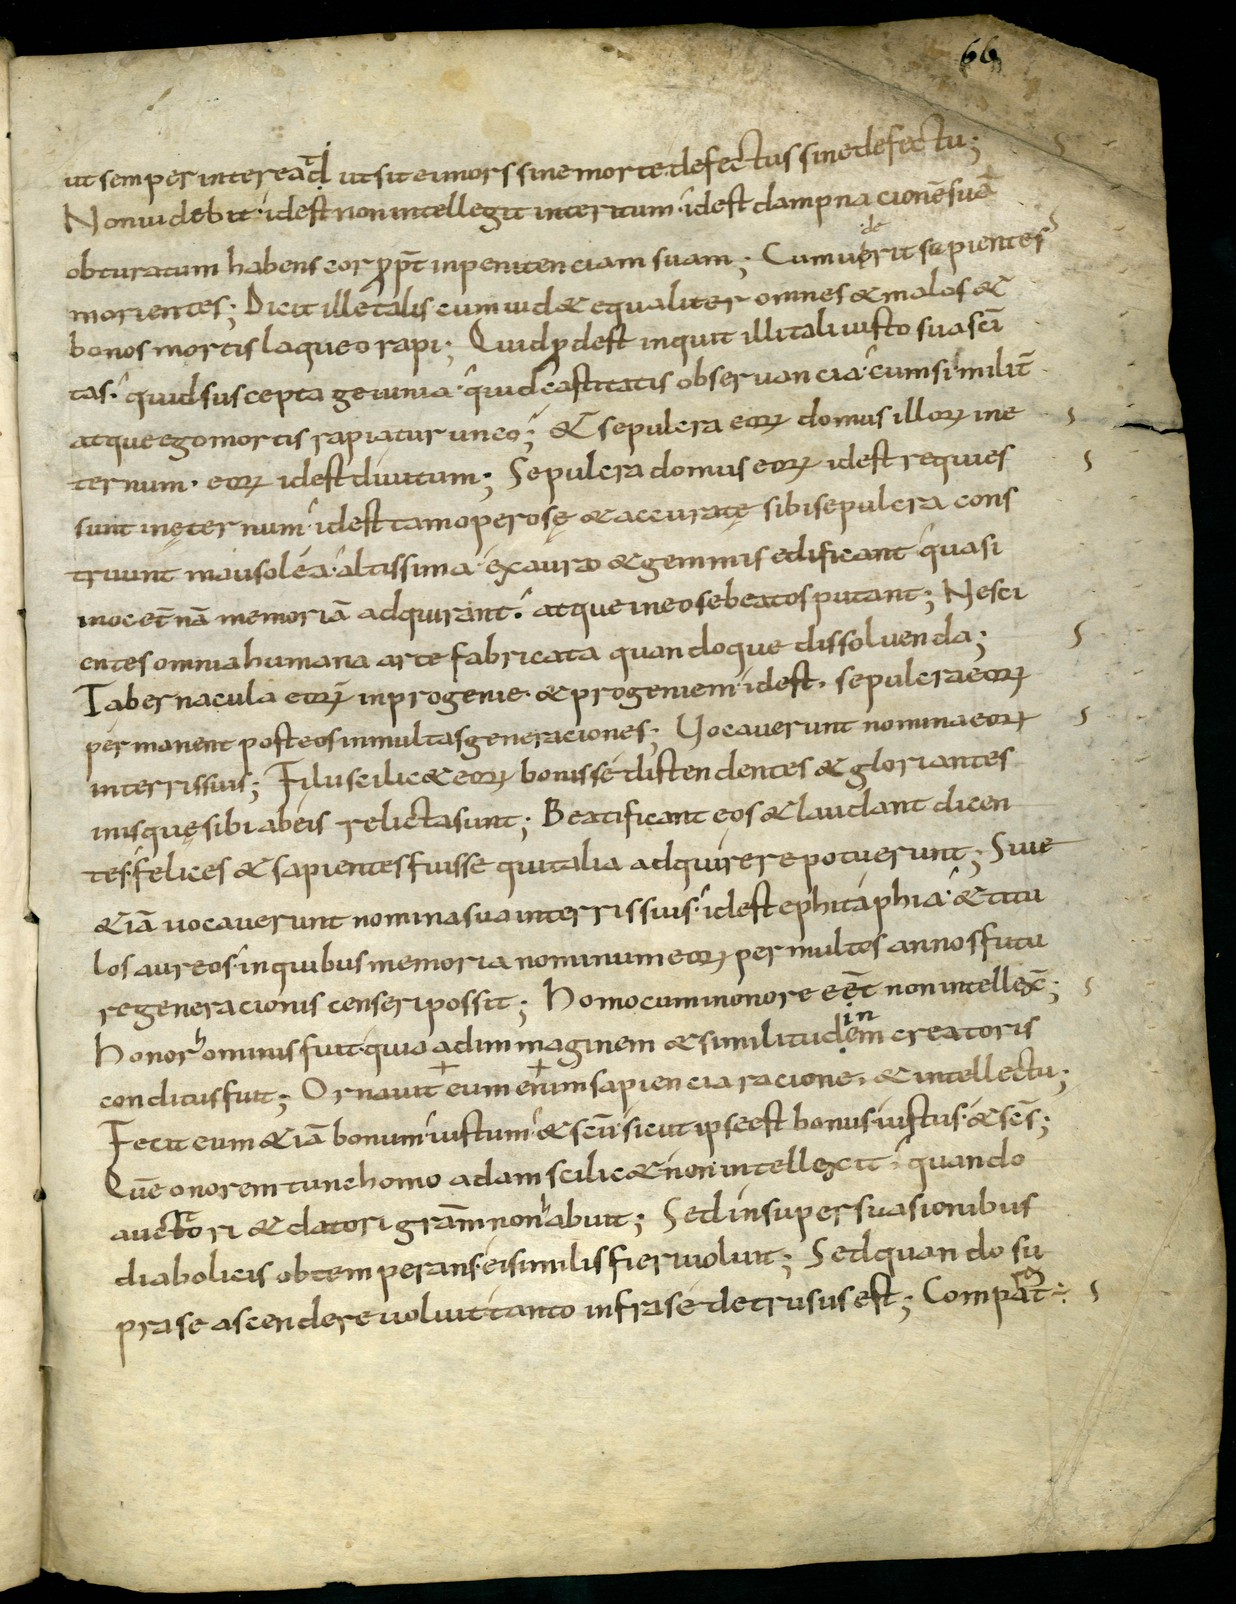 66
ut semper intereat ut sit ei mors sine morte defectus sine defectu;
Non uidebit· idest non intellegit interitum· idest dampnacionē suā
obturatum habens cor ꝓpt̄ inpenitenciam suam; Cum uiderit sapientes
morientes; Dicit ille talis cum uid& equaliter omnes & malos &
bonos mortis laqueo rapi; Quid ꝓdest inquit illi tali iusto sua sc̄i
tas· quid suscepta geiunia· quid castitatis obseruancia· cum similit̄
atque ego mortis rapiatur unco; & sepulcra eoꝝ domus illoꝝ in e
ternum· eoꝝ idest diuitum; Sepulcra domus eoꝝ idest requies
sunt in ęternum· idest tam operosę & accuratę sibi sepulcra cons
truunt mausolea· altissima· ex auro & gemmis edificant quasi
in oc et̄nā memoriā adquirant· atque in eo se beatos putant; Nesci
entes omnia humana arte fabricata quandoque dissoluenda;
Tabernacula eoꝝ in progenie· & progeniem· idest· sepulcra eoꝝ
permanent post eos in multas generaciones; Uocauerunt nomina eoꝝ
in terris suis; Filii scilic& eoꝝ bonis se distendentes & gloriantes
in is quę sibi ab eis relicta sunt; Beatificant eos & laudant dicen
tes· felices & sapientes fuisse qui talia adquirere potuerunt; Siue
&iā uocauerunt nomina sua in terris suis· idest ephitaphia· & titu
los aureos· in quibus memoria nominum eoꝝ per multos annos futu
re generacionis censeri possit; Homo cum in onore eēt non intellex̄;
Honor hominis fuit· quia ad immaginem & similitudinem creatoris
conditus fuit; Ornauit eum enim sapiencia racione· & intellectu;
Fecit eum &iā bonum· iustum· & sc̄m̄· sicut ipse est bonus· iustus· & sc̄s;
Quē onorem tunc homo adam scilic& non intellexit· quando
auctori & datori grām non habuit; Sed in super suasionibus
diabolicis obtemperans· ei similis fieri uoluit; Sed quando su
pra se ascendere uoluit tanto infra se detrusus est; Comparat̄